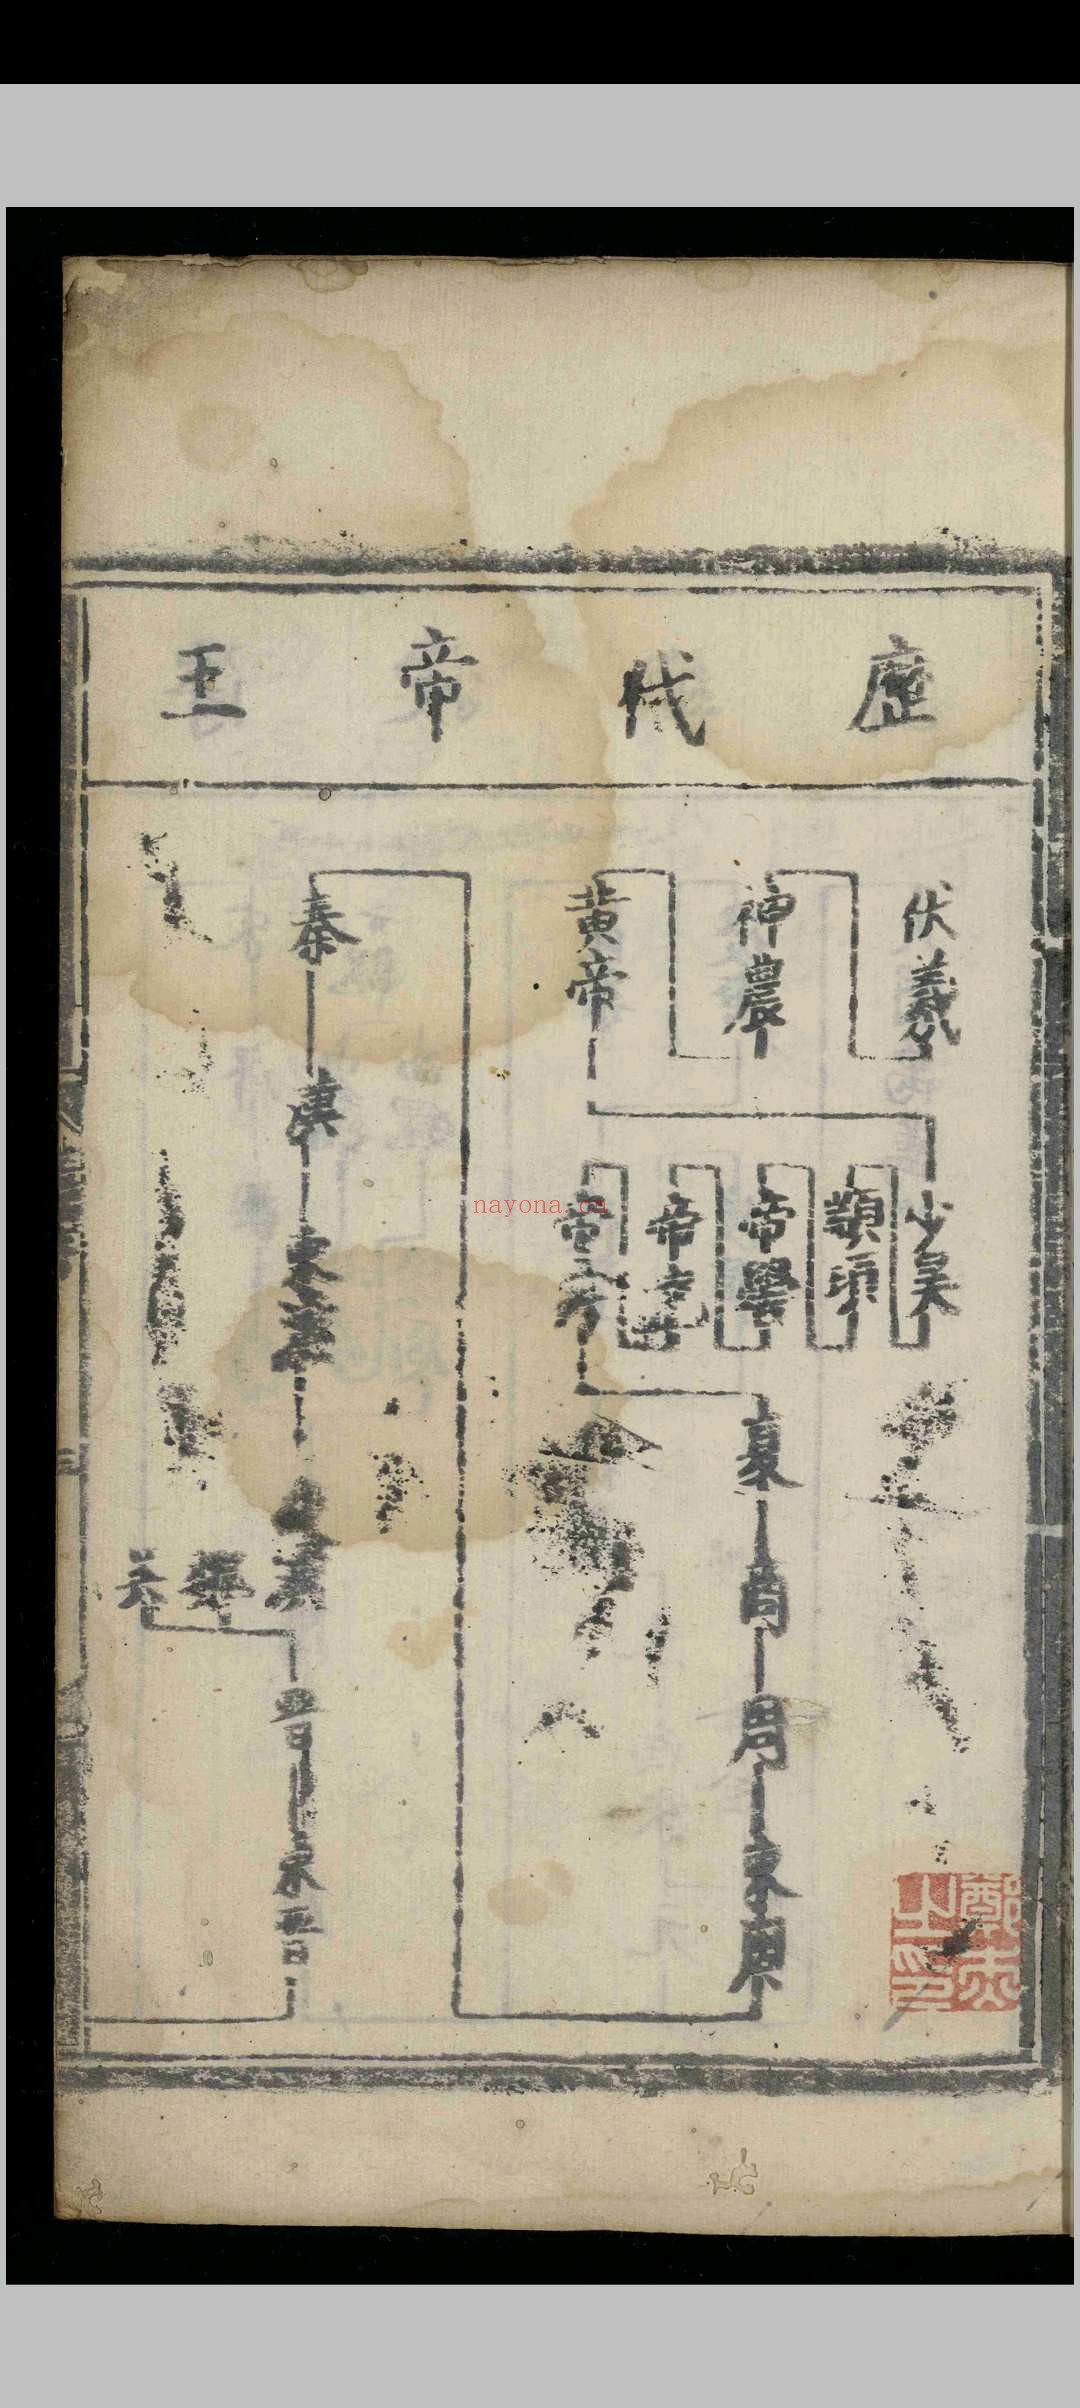 歷代帝王
伏羲
神農
黃帝
少昊
顓頊
帝嚳
帝堯
帝舜
夏
商
周
東周
秦
漢
東漢
晉
東晉
nayona.cn